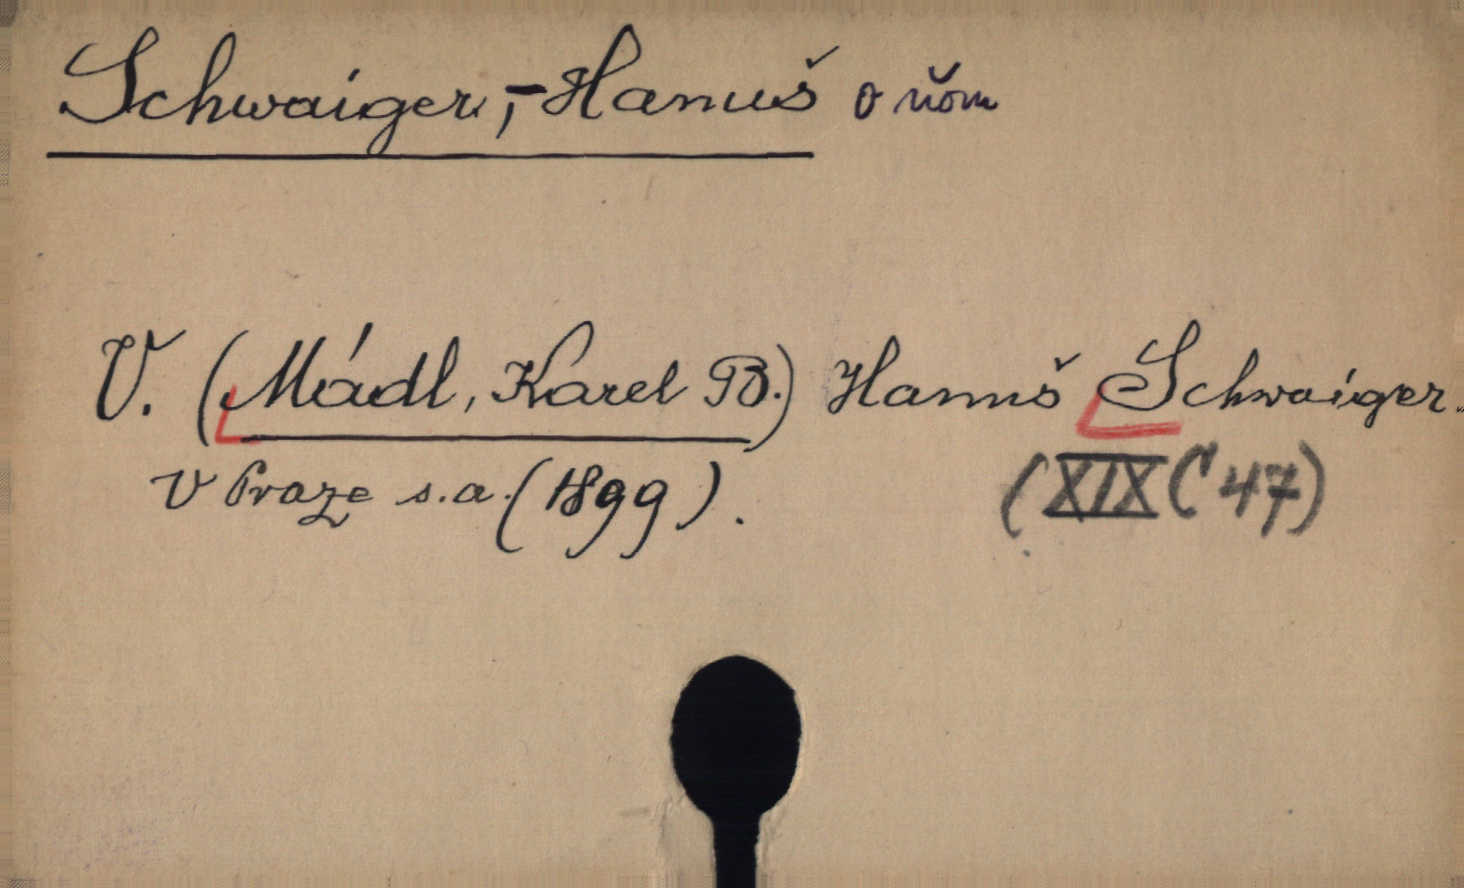 Schwaiger,-Hanuš o ňom
V. (Mádl, Karel B.) Hanuš Schwaiger.
v Praze s.a. (1899). (XIX C 47)